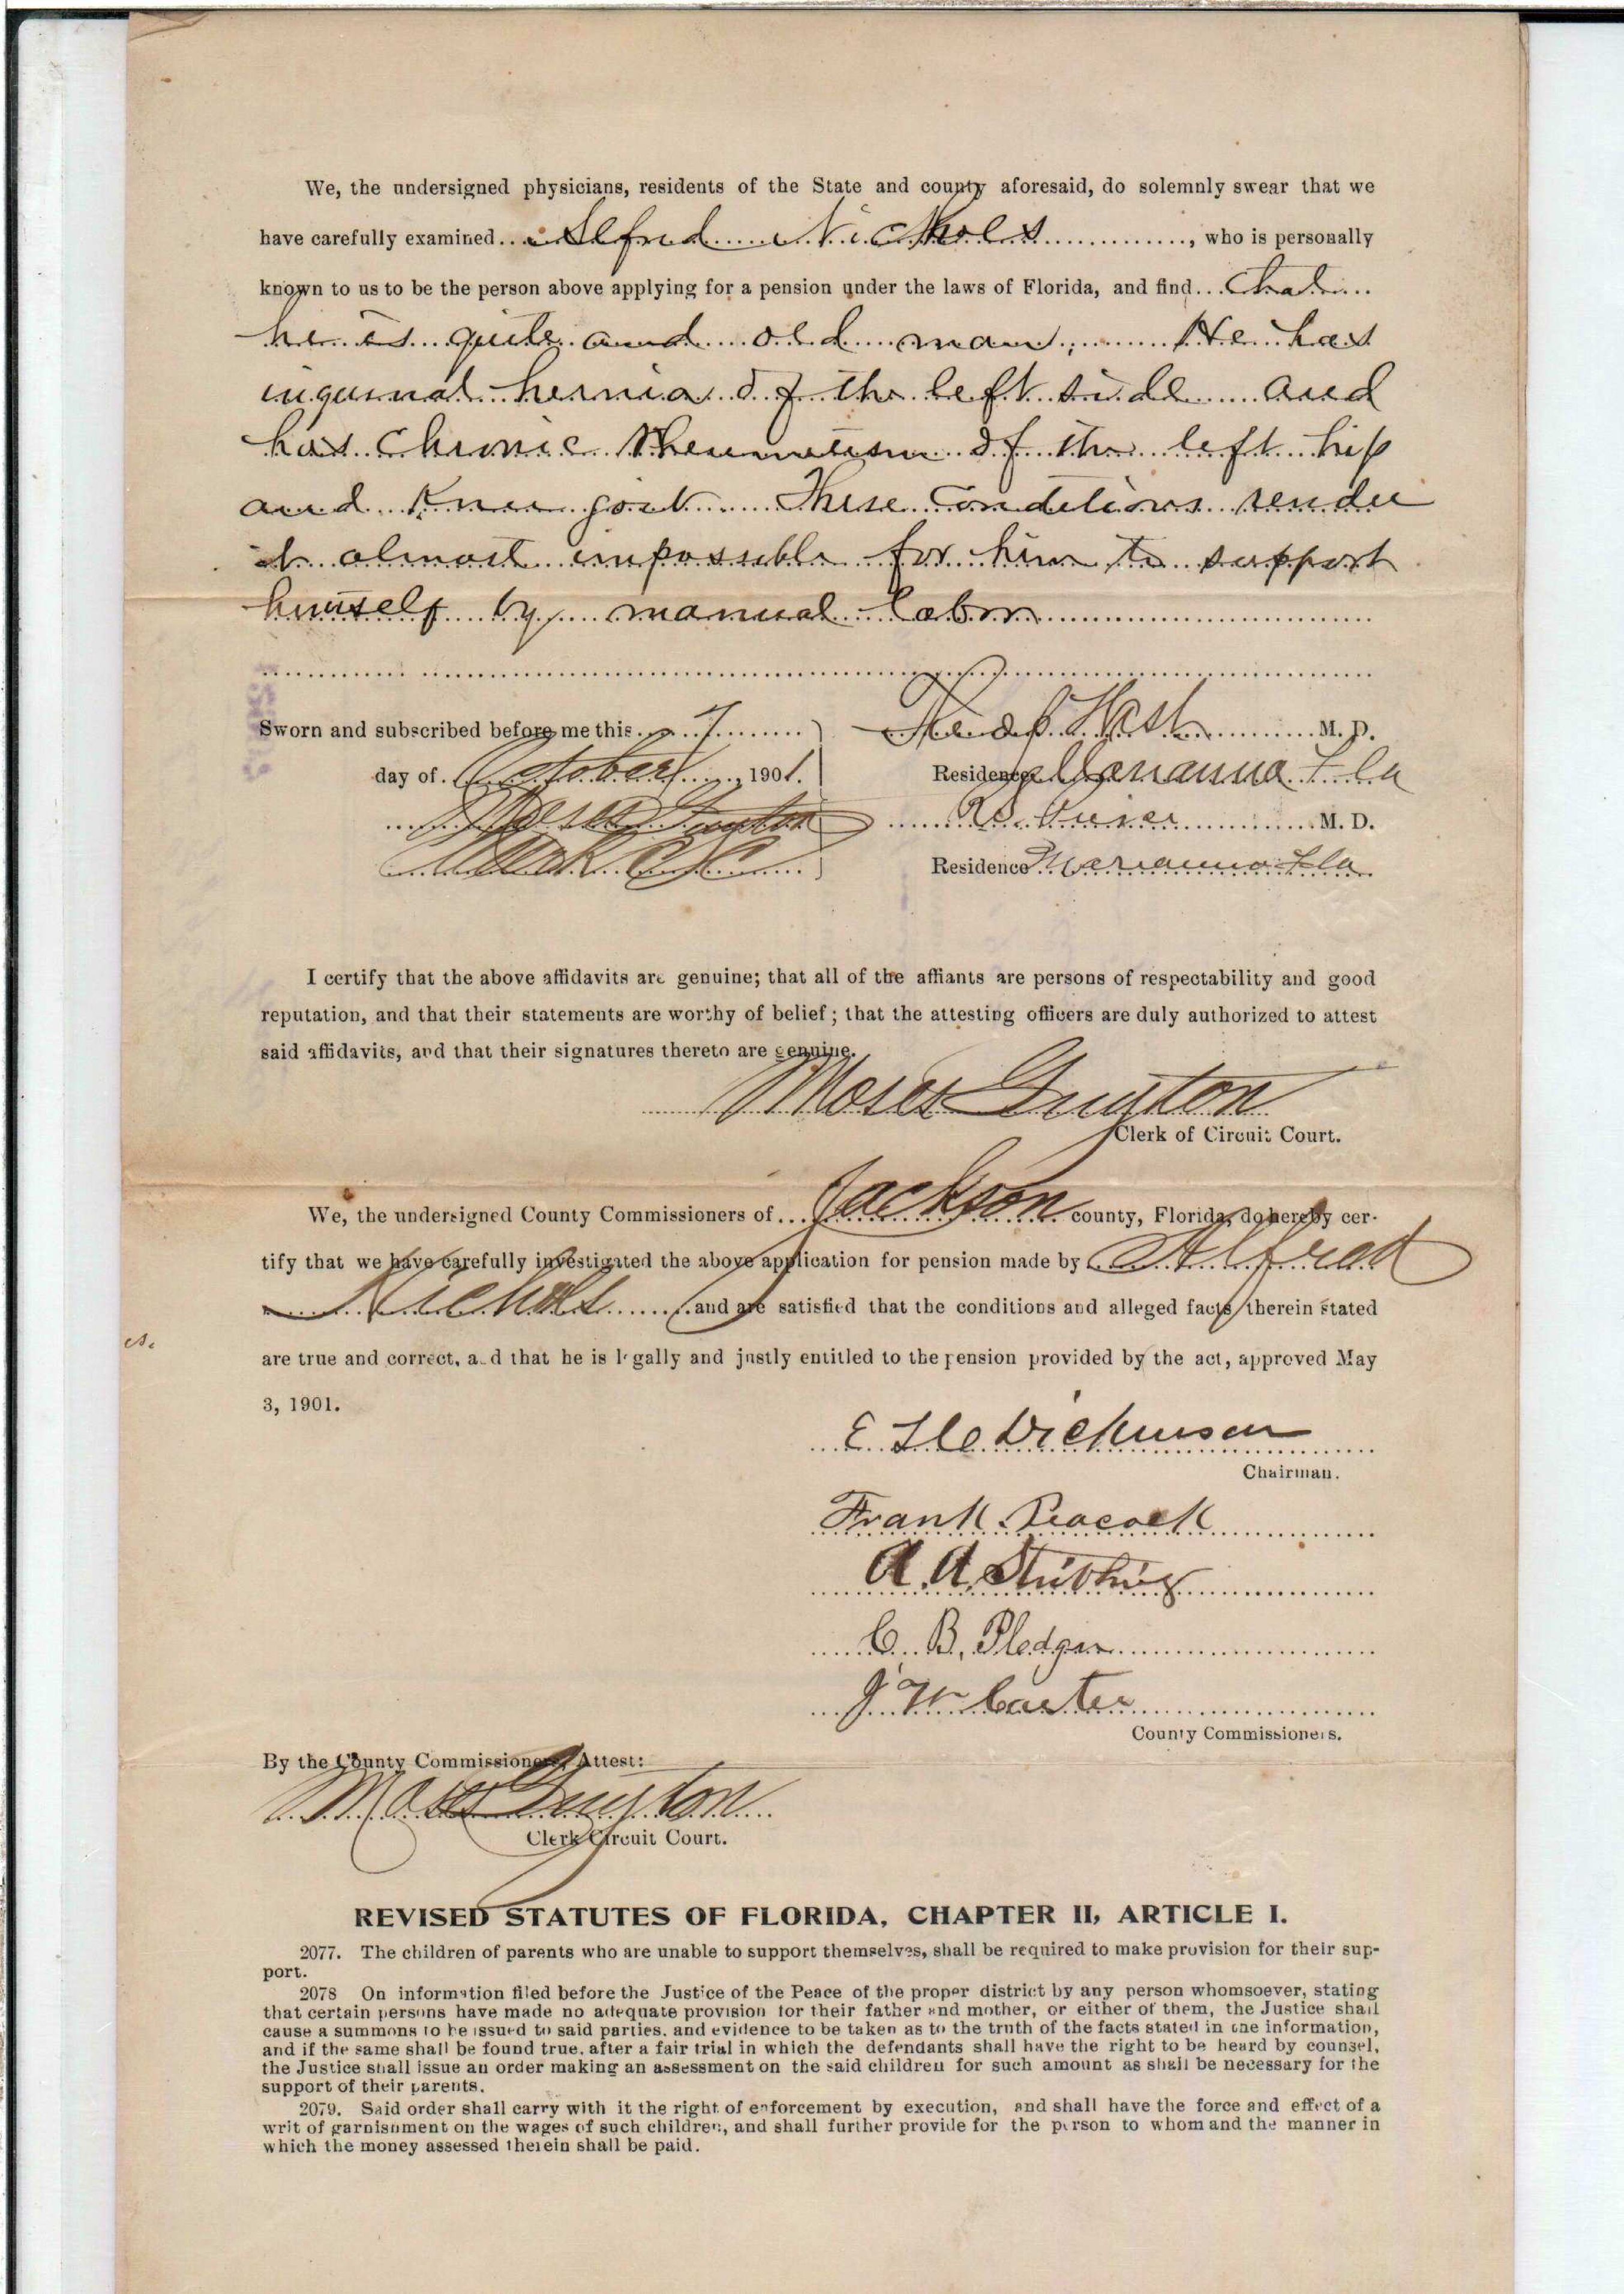 We, the undersigned physicians, residents of the State and county aforesaid, do solemnly swear that we
have carefully examined Alfred Nichols, who is personally
known to us to be the person above applying for a pension under the laws of Florida, and find that
he is quite and old man, He has
inguinal hernia of the left side and
has chronic rheumatism of the left hip
and Knee joint These conditions render
it almost impossible for him to support
himself by manual labor
Sworn and subscribed before me this 7 M. D.
day of October, 1901. Residence Marianna Fla
Moses Guyton M. D.
Clerk C C Residence Marianna Fla
I certify that the above affidavits are genuine; that all of the affiants are persons of respectability and good
reputation, and that their statements are worthy of belief; that the attesting officers are duly authorized to attest
said affidavits, and that their signatures thereto are genuine.
Moses Guyton
Clerk of Circuit Court.
We, the undersigned County Commissioners of Jackson county, Florida, do hereby cer-
tify that we have carefully investigated the above application for pension made by Alfred
Nichols and are satisfied that the conditions and alleged facts therein stated
are true and correct, and that he is legally and justly entitled to the pension provided by the act, approved May
3, 1901.
E Dickinson
Chairman.
Frank Peacock
A. A. Stribling
C. B. Pledger
J W Carter
County Commissioners.
By the County Commissioners, Attest:
Moses Guyton
Clerk Circuit Court.
REVISED STATUTES OF FLORIDA, CHAPTER II, ARTICLE I.
2077. The children of parents who are unable to support themselves, shall be required to make provision for their sup-
port.
2078 On information filed before the Justice of the Peace of the proper district by any person whomsoever, stating
that certain persons have made no adequate provision for their father and mother, or either of them, the Justice shall
cause a summons to be issued to said parties, and evidence to be taken as to the truth of the facts stated in the information,
and if the same shall be found true, after a fair trial in which the defendants shall have the right to be heard by counsel,
the Justice shall issue an order making an assessment on the said children for such amount as shall be necessary for the
support of their parents.
2079. Said order shall carry with it the right of enforcement by execution, and shall have the force and effect of a
writ of garnishment on the wages of such children, and shall further provide for the person to whom and the manner in
which the money assessed therein shall be paid.